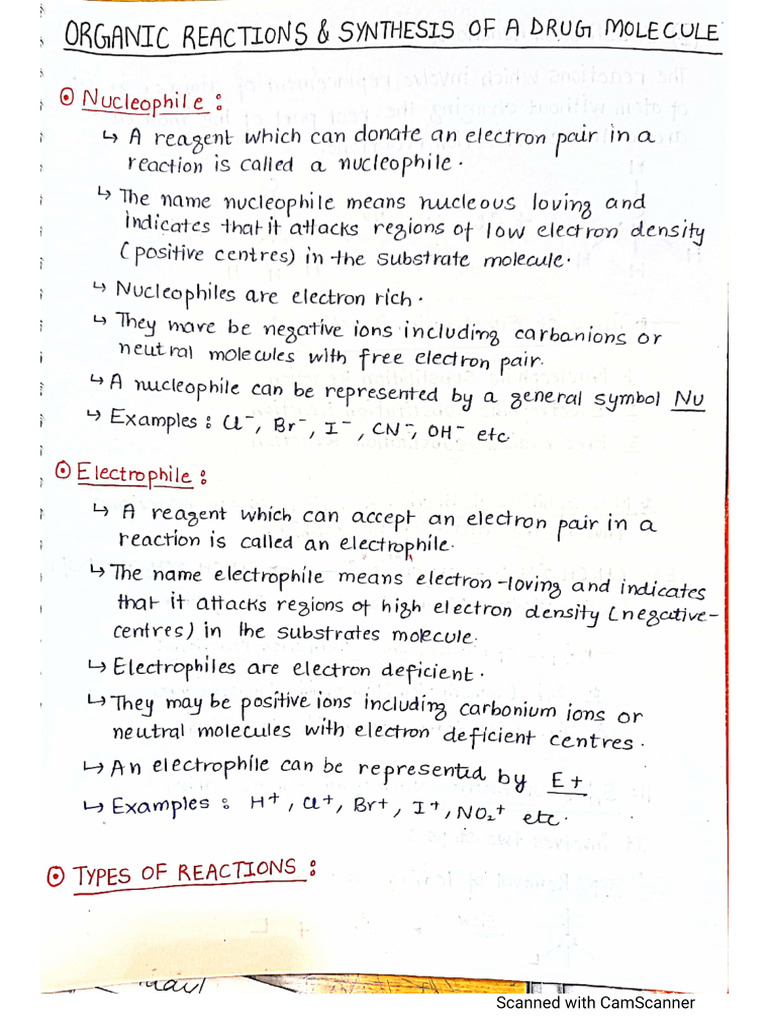 ORGANIC REACTIONS & SYNTHESIS OF A DRUG MOLECULE
⊙ Nucleophile :
↳ A reagent which can donate an electron pair in a
reaction is called a nucleophile.
↳ The name nucleophile means nucleous loving and
indicates that it attacks regions of low electron density
(positive centres) in the substrate molecule.
↳ Nucleophiles are electron rich.
↳ They mave be negative ions including carbanions or
neutral molecules with free electron pair.
↳ A nucleophile can be represented by a general symbol Nu
↳ Examples : Cl⁻, Br⁻, I⁻, CN⁻, OH⁻ etc
⊙ Electrophile :
↳ A reagent which can accept an electron pair in a
reaction is called an electrophile.
↳ The name electrophile means electron-loving and indicates
that it attacks regions of high electron density (negative-
centres) in the substrates molecule.
↳ Electrophiles are electron deficient.
↳ They may be positive ions including carbonium ions or
neutral molecules with electron deficient centres.
↳ An electrophile can be represented by E+
↳ Examples : H⁺, Cl⁺, Br⁺, I⁺, NO₂⁺ etc.
⊙ TYPES OF REACTIONS :
Scanned with CamScanner